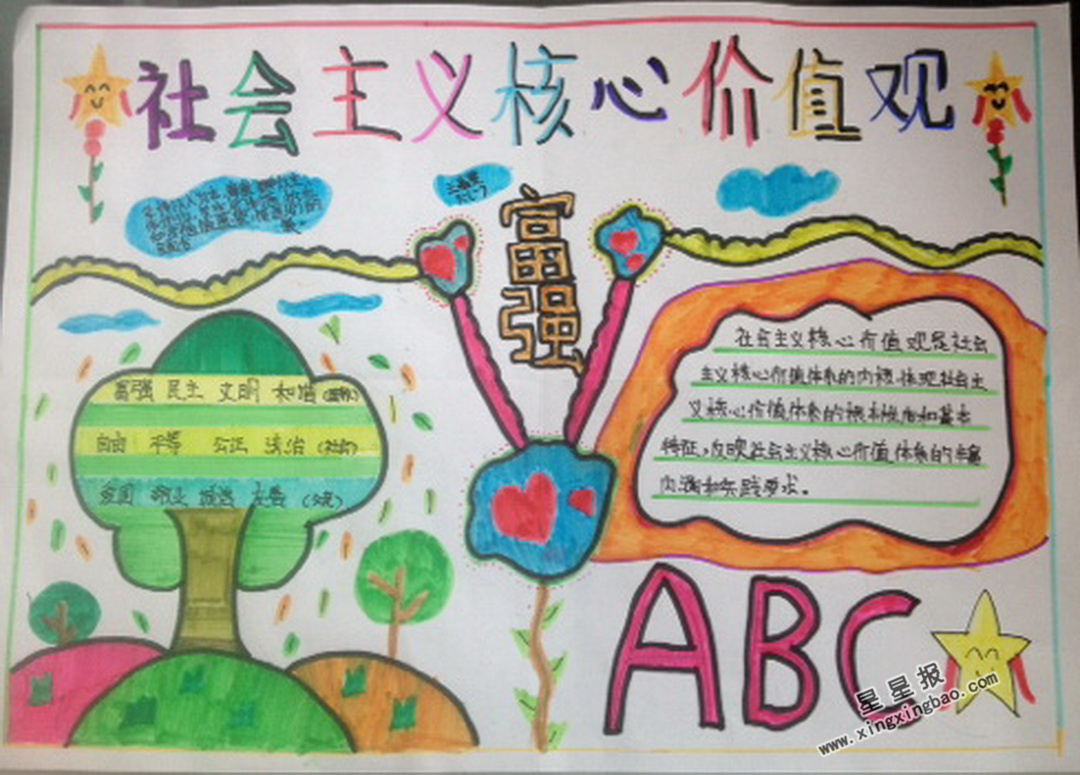 社会主义核心价值观
富强
富强 民主 文明 和谐
自由 平等 公正 法治
爱国 敬业 诚信 友善
社会主义核心价值观是社会
主义核心价值体系的内核，体现社会主
义核心价值体系的根本性质和基本
特征，反映社会主义核心价值体系的丰富
内涵和实践要求。
ABC
星星报
www.xingxingbao.com